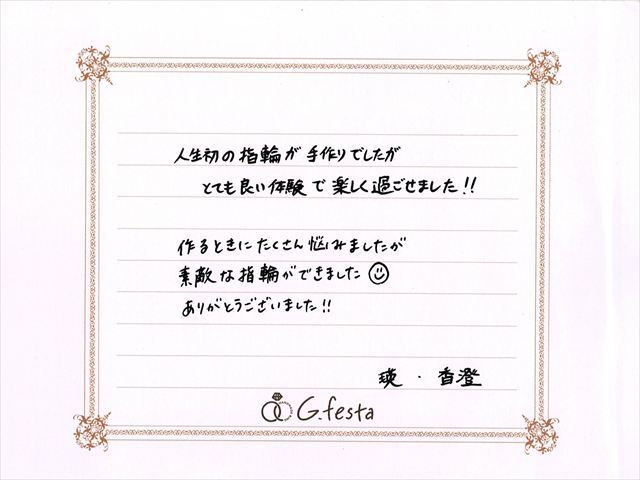 人生初の指輪が手作りでしたが
とても良い体験で楽しく過ごせました!!
作るときにたくさん悩みましたが
素敵な指輪ができました
ありがとうございました!!
瑛・香澄
G.festa